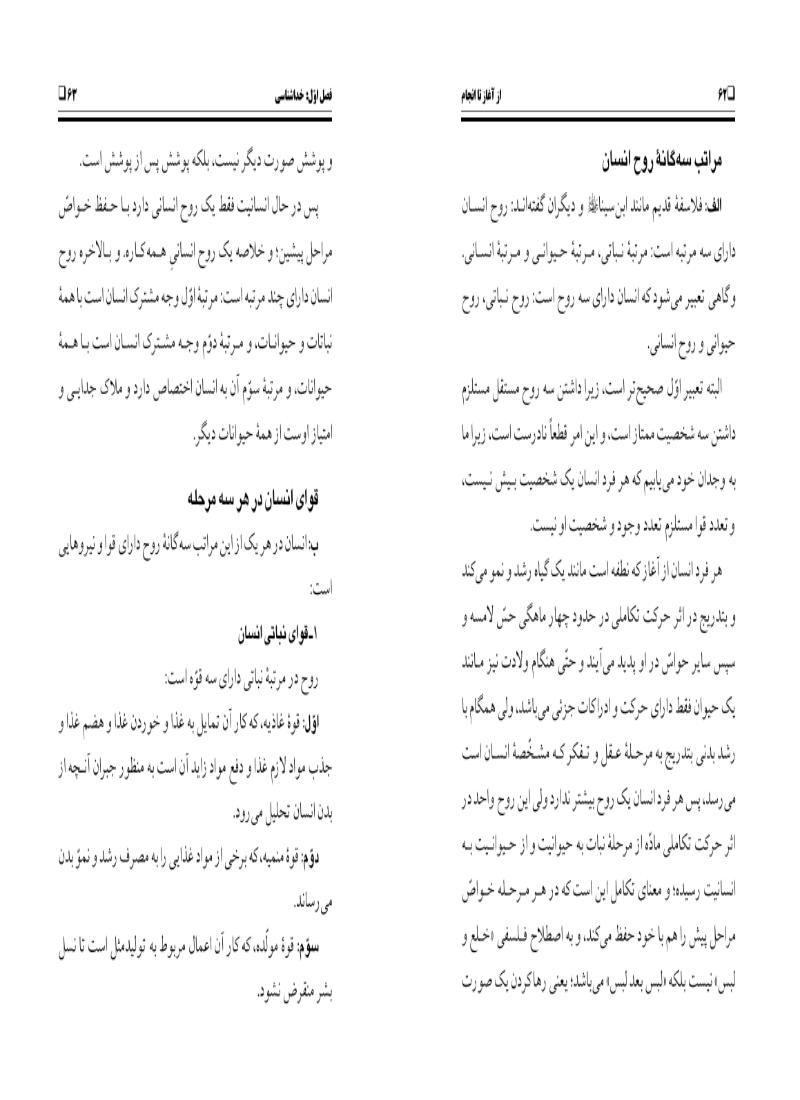 ❑۶۲
از آغاز تا انجام
مراتب سه‌گانهٔ روح انسان
الف: فلاسفهٔ قدیم مانند ابن‌سینا و دیگران گفته‌اند: روح انسان
دارای سه مرتبه است: مرتبهٔ نباتی، مرتبهٔ حیوانی و مرتبهٔ انسانی.
و گاهی تعبیر می‌شود که انسان دارای سه روح است: روح نباتی، روح
حیوانی و روح انسانی.
البته تعبیر اوّل صحیح‌تر است، زیرا داشتن سه روح مستقل مستلزم
داشتن سه شخصیت ممتاز است، و این امر قطعاً نادرست است، زیرا ما
به وجدان خود می‌یابیم که هر فرد انسان یک شخصیت بیش نیست،
و تعدد قوا مستلزم تعدد وجود و شخصیت او نیست.
هر فرد انسان از آغاز که نطفه است مانند یک گیاه رشد و نمو می‌کند
و بتدریج در اثر حرکت تکاملی در حدود چهار ماهگی حسّ لامسه و
سپس سایر حواسّ در او پدید می‌آیند و حتّی هنگام ولادت نیز مانند
یک حیوان فقط دارای حرکت و ادراکات جزئی می‌باشد، ولی همگام با
رشد بدنی بتدریج به مرحلهٔ عقل و تفکر که مشخّصهٔ انسان است
می‌رسد، پس هر فرد انسان یک روح بیشتر ندارد ولی این روح واحد در
اثر حرکت تکاملی مادّه از مرحلهٔ نبات به حیوانیت و از حیوانیت به
انسانیت رسیده؛ و معنای تکامل این است که در هر مرحله خواصّ
مراحل پیش را هم با خود حفظ می‌کند، و به اصطلاح فلسفی «خلع و
لبس» نیست بلکه «لبس بعد لبس» می‌باشد؛ یعنی رها کردن یک صورت
فصل اوّل: خداشناسی
۶۳❑
و پوشش صورت دیگر نیست، بلکه پوشش پس از پوشش است.
پس در حال انسانیت فقط یک روح انسانی دارد با حفظ خواصّ
مراحل پیشین؛ و خلاصه یک روح انسانیِ همه‌کاره. و بالاخره روح
انسان دارای چند مرتبه است: مرتبهٔ اوّل وجه مشترک انسان است با همهٔ
نباتات و حیوانات، و مرتبهٔ دوّم وجه مشترک انسان است با همهٔ
حیوانات، و مرتبهٔ سوّم آن به انسان اختصاص دارد و ملاک جدایی و
امتیاز اوست از همهٔ حیوانات دیگر.
قوای انسان در هر سه مرحله
ب: انسان در هر یک از این مراتب سه‌گانهٔ روح دارای قوا و نیروهایی
است:
۱ـ قوای نباتی انسان
روح در مرتبهٔ نباتی دارای سه قوّه است:
اوّل: قوهٔ غاذیه، که کار آن تمایل به غذا و خوردن غذا و هضم غذا و
جذب مواد لازم غذا و دفع مواد زاید آن است به منظور جبران آنچه از
بدن انسان تحلیل می‌رود.
دوّم: قوهٔ منمیه، که برخی از مواد غذایی را به مصرف رشد و نموّ بدن
می‌رساند.
سوّم: قوهٔ مولّده، که کار آن اعمال مربوط به تولیدمثل است تا نسل
بشر منقرض نشود.